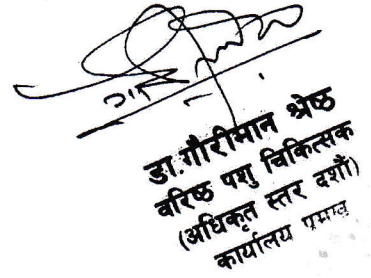 डा.गौरीमान श्रेष्ठ
वरिष्ठ पशु चिकित्सक
(अधिकृत स्तर दशौं)
कार्यालय प्रमुख